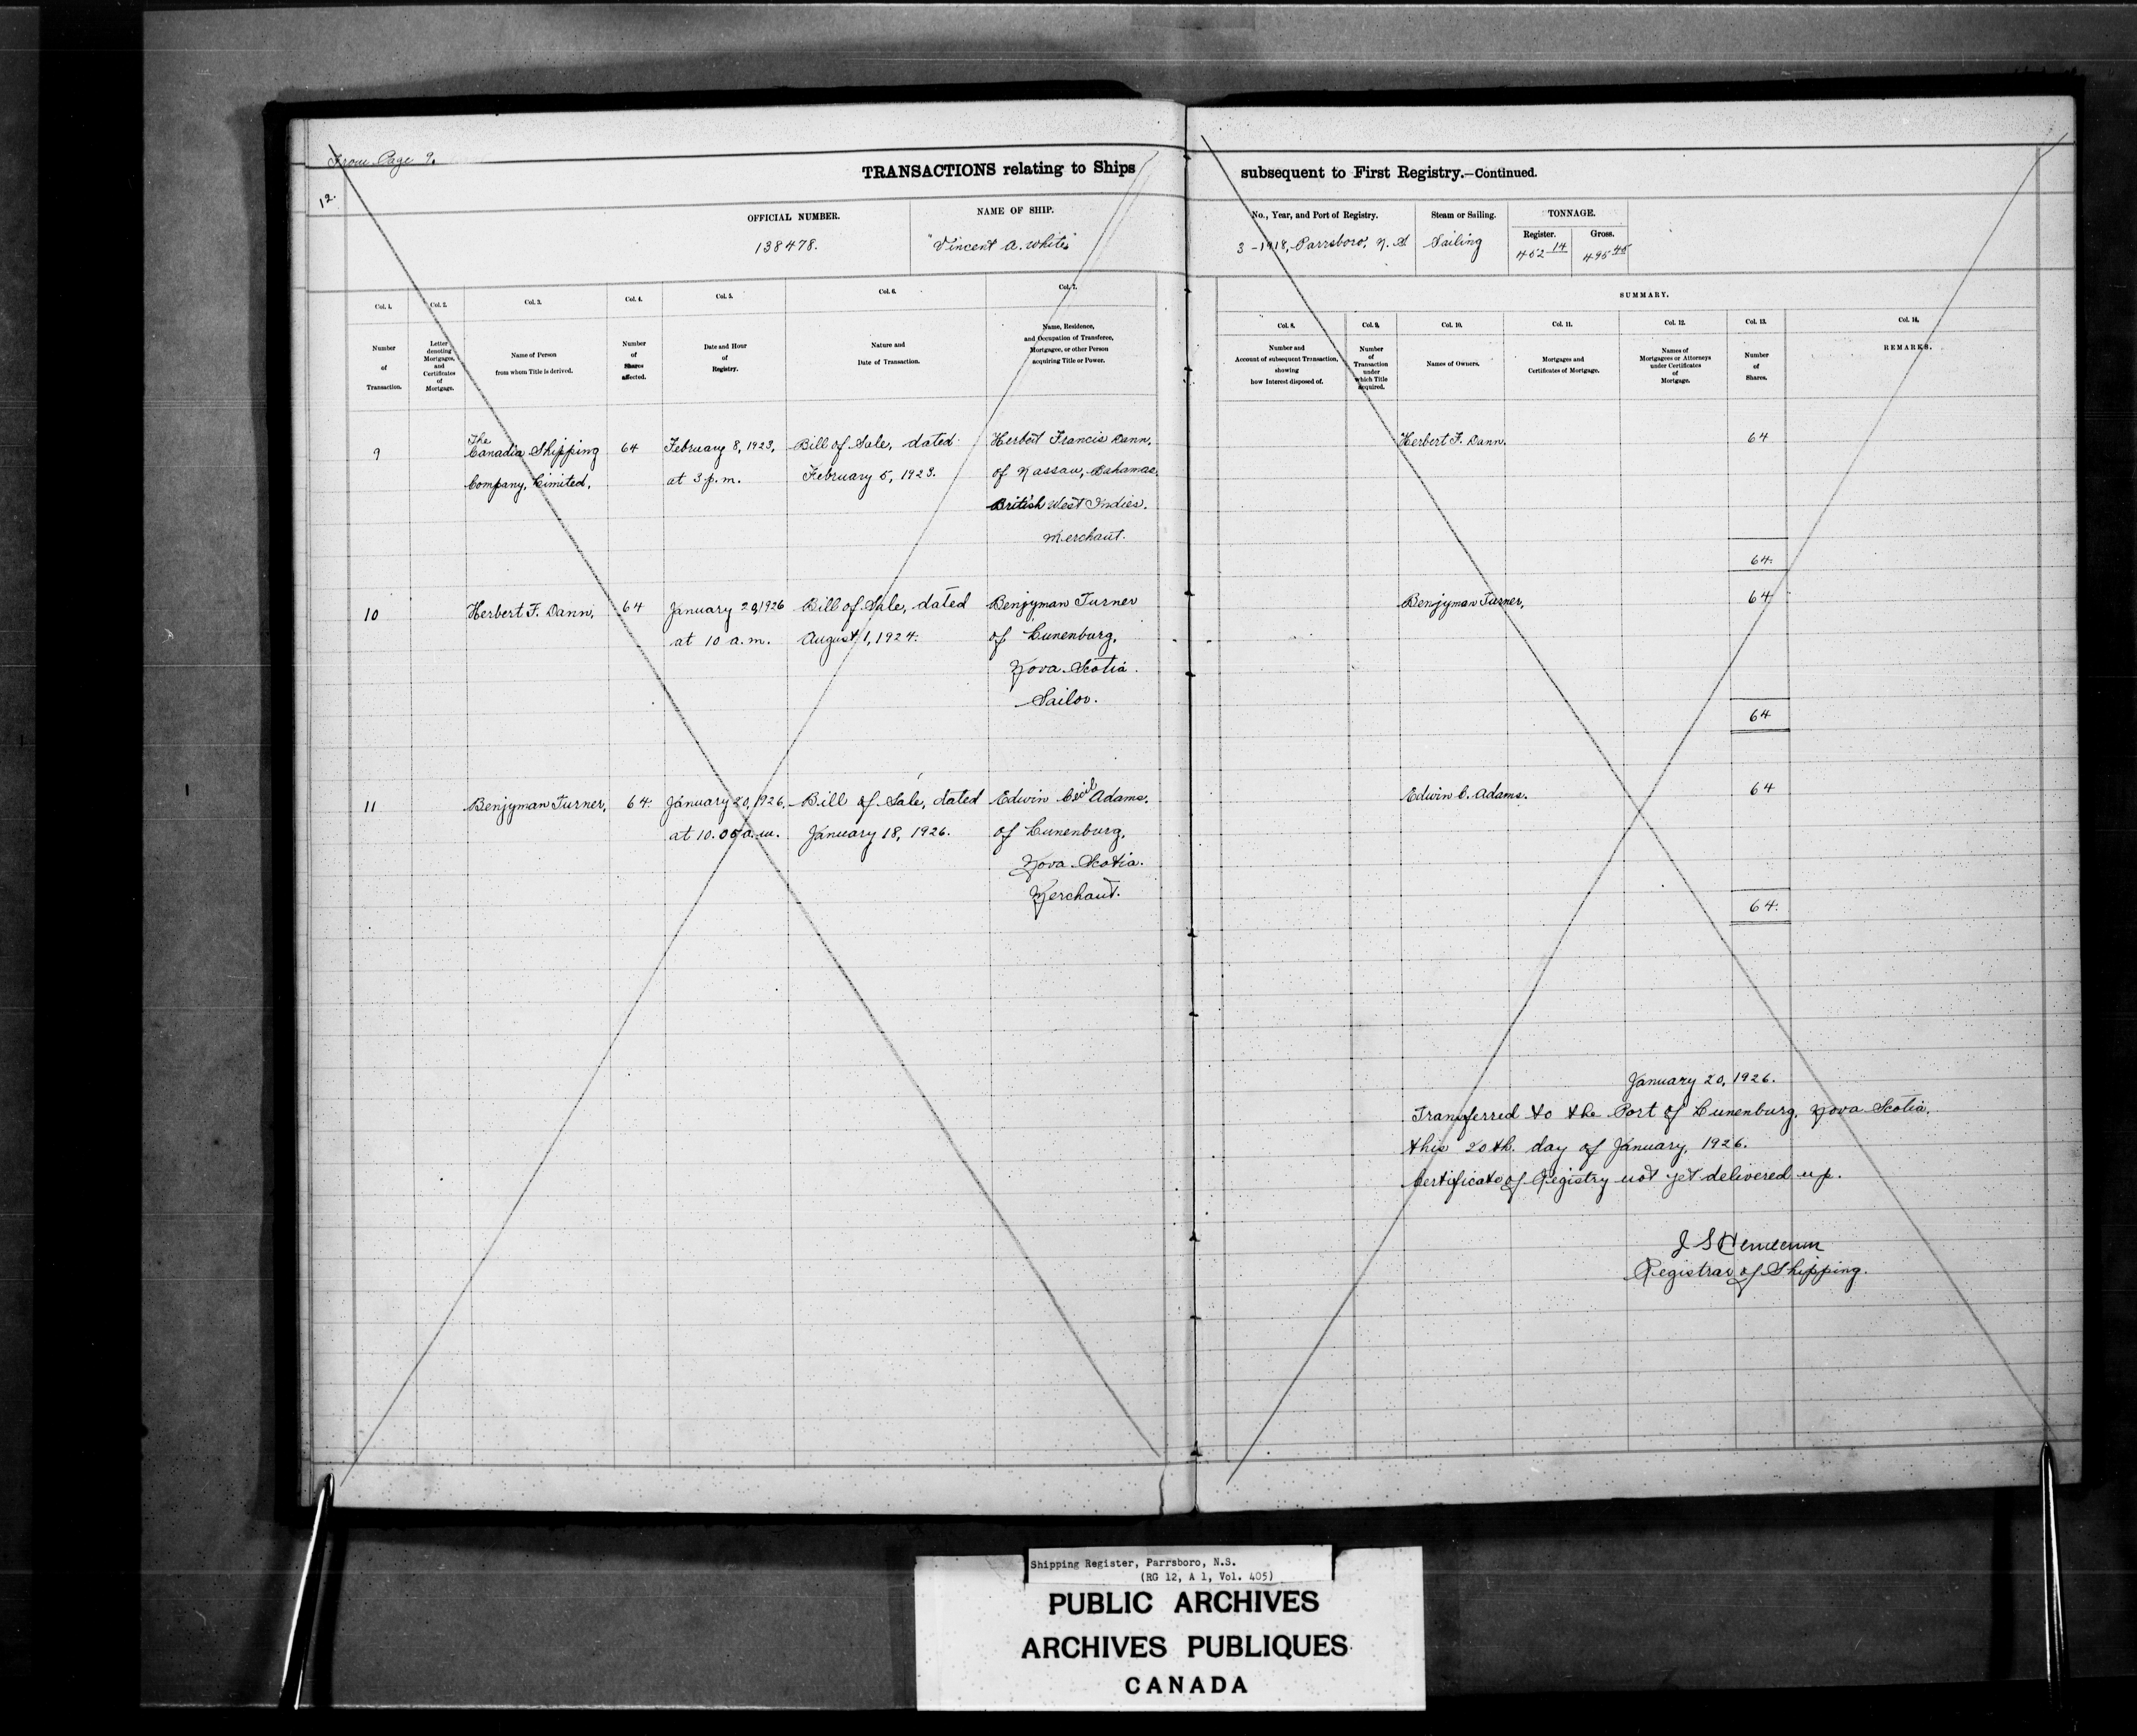 From Page 9.
12.
TRANSACTIONS relating to Ships subsequent to First Registry.—Continued.
OFFICIAL NUMBER.
138478.
NAME OF SHIP.
"Vincent A. White"
No., Year, and Port of Registry.
3-1918, Parrsboro, N.S.
Steam or Sailing.
Sailing
TONNAGE.
Register.
452 14
Gross.
495 45
Col. 1.
Number
of
Transaction.
Col. 2.
Letter
denoting
Mortgages,
and
Certificates
of
Mortgage.
Col. 3.
Name of Person
from whom Title is derived.
Col. 4.
Number
of
Shares
affected.
Col. 5.
Date and Hour
of
Registry.
Col. 6.
Nature and
Date of Transaction.
Col. 7.
Name, Residence,
and Occupation of Transferee,
Mortgagee, or other Person
acquiring Title or Power.
SUMMARY.
Col. 8.
Number and
Account of subsequent Transaction,
showing
how Interest disposed of.
Col. 9.
Number
of
Transaction
under
which Title
acquired.
Col. 10.
Names of Owners.
Col. 11.
Mortgages and
Certificates of Mortgage.
Col. 12.
Names of
Mortgagees or Attorneys
under Certificates
of
Mortgage.
Col. 13.
Number
of
Shares.
Col. 14.
REMARKS.
9
The
Canadia Shipping
Company, Limited,
64
February 8, 1923,
at 3 p.m.
Bill of Sale, dated
February 5, 1923.
Herbert Francis Dann,
of Nassau, Bahamas.
British West Indies.
Merchant.
Herbert F. Dann.
64
64.
10
Herbert F. Dann,
64
January 20, 1926
at 10 a.m.
Bill of Sale, dated
August 1, 1924.
Benjyman Turner
of Lunenburg,
Nova Scotia.
Sailor.
Benjyman Turner,
64
64
11
Benjyman Turner,
64.
January 20, 1926,
at 10.05 a.m.
Bill of Sale, dated
January 18, 1926.
Edwin Cecil Adams,
of Lunenburg,
Nova Scotia.
Merchant.
Edwin C. Adams.
64
64.
January 20, 1926.
Transferred to the Port of Lunenburg, Nova Scotia,
this 20th. day of January, 1926.
Certificate of Registry not yet delivered up.
J S Henderson
Registrar of Shipping.
Shipping Register, Parrsboro, N.S.
(RG 12, A 1, Vol. 405)
PUBLIC ARCHIVES
ARCHIVES PUBLIQUES
CANADA